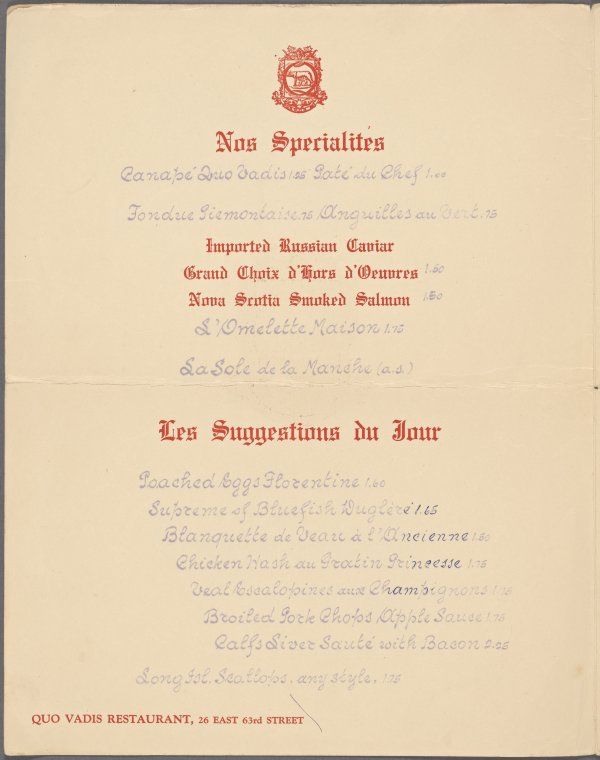 Nos Specialités
Canapé Quo Vadis 1.25 Paté du Chef 1.00
Fondue Piemontaise .75 Anguilles au Vert .75
Imported Russian Caviar
Grand Choix d'Hors d'Oeuvres 1.50
Nova Scotia Smoked Salmon 1.50
L'Omelette Maison 1.75
La Sole de la Manche (a.s.)
Les Suggestions du Jour
Poached Eggs Florentine 1.60
Supreme of Bluefish Dugléré 1.65
Blanquette de Veau à l'Ancienne 1.50
Chicken Hash au Gratin Princesse 1.75
Veal Escalopines aux Champignons 1.75
Broiled Pork Chops, Apple Sauce 1.75
Calfs Liver Sauté with Bacon 2.25
Long Isl. Scallops, any style, 1.75
QUO VADIS RESTAURANT, 26 EAST 63rd STREET